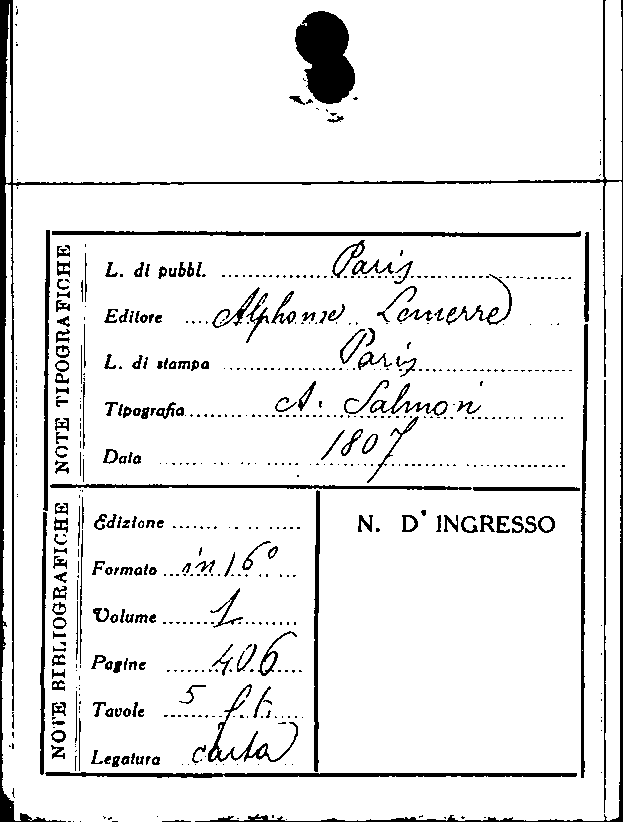 NOTE TIPOGRAFICHE
L. di pubbl. Paris
Editore Alphonse Lemerre
L. di stampa Paris
Tipografia A. Salmon
Data 1807
NOTE BIBLIOGRAFICHE
Edizione
Formato in 16°
Volume 1
Pagine 406
Tavole 5 f.t.
Legatura carta
N. D' INGRESSO